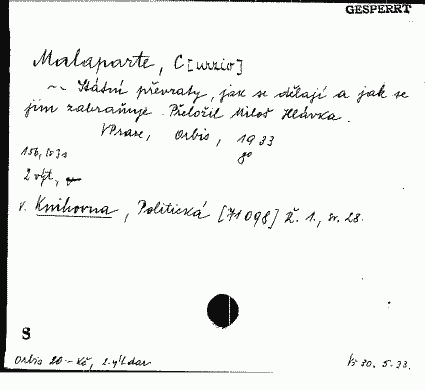 GESPERRT
Malaparte, C[urzio]
~~ Státní převraty, jak se dělají a jak se
jim zabraňuje. Přeložil Miloš Hlávka.
V Praze, Orbis, 1933
8°
156, [3] s
2 výt.,
v. Knihovna, Politická [71098] Ř. 1., sv. 28.
S
Orbis 20 - Kč, 2. výt dar
30. 5. 33.